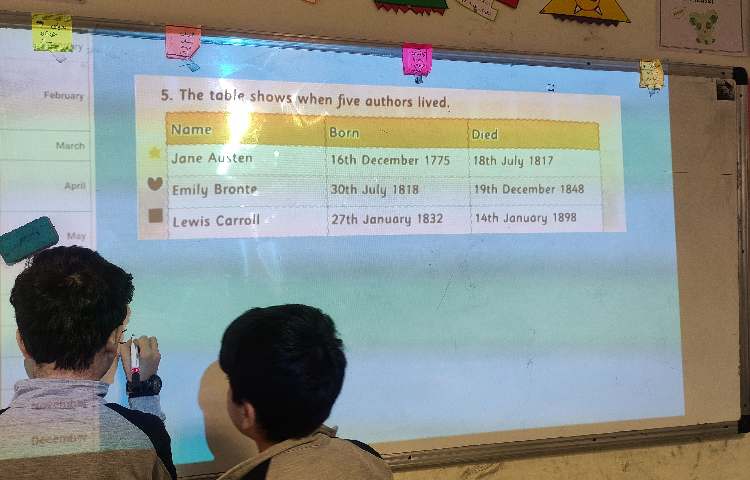 February
March
April
May
November
December
5. The table shows when five authors lived.
Name Born Died
Jane Austen 16th December 1775 18th July 1817
Emily Bronte 30th July 1818 19th December 1848
Lewis Carroll 27th January 1832 14th January 1898